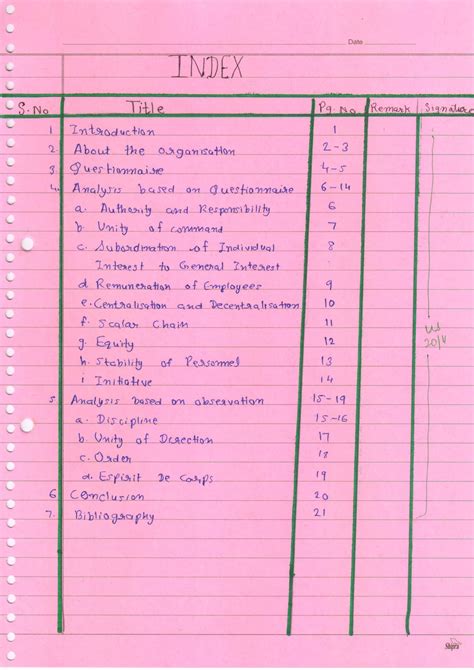 Date
INDEX
S.No Title Pg. No. Remark Signature
1 Introduction 1
2. About the organisation 2-3
3. Questionnaire 4-5
4. Analysis based on Questionnaire 6-14
a. Authority and Responsibility 6
b. Unity of command 7
c. Subordination of Individual 8
Interest to General Interest
d Remuneration of Employees 9
e. Centralisation and Decentralisation 10
f. Scalar Chain 11
g. Equity 12
h. Stability of Personnel 13
i Initiative 14
5. Analysis based on observation 15-19
a. Discipline 15-16
b. Unity of Direction 17
c. Order 18
d. Espirit De Corps 19
6. Conclusion 20
7. Bibliography 21
Shipra